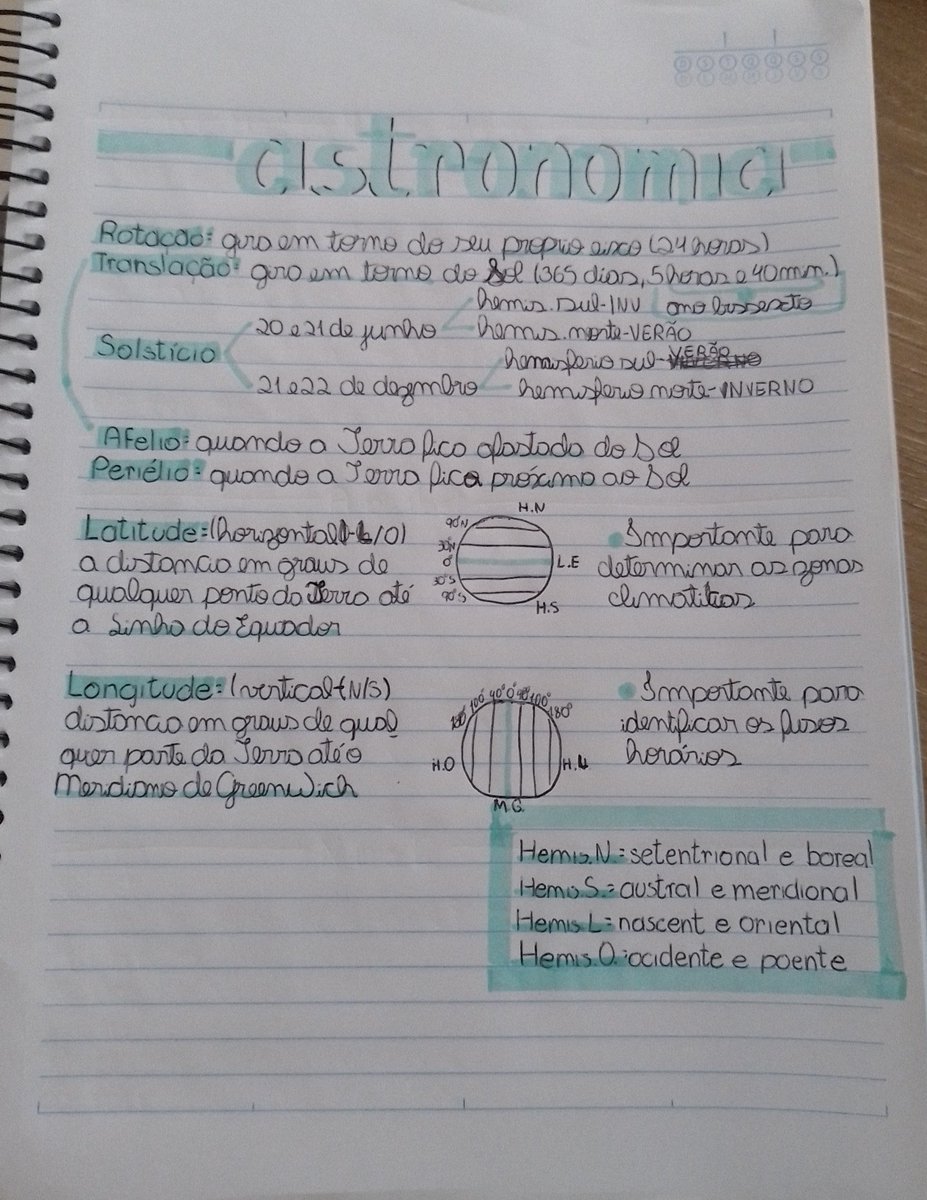 astronomia
Rotação: giro em torno do seu proprio eixo (24 horas)
Translação: giro em torno do Sol (365 dias, 5 horas e 40 mm.)
hemis. sul-INV ano bissexto
20 e 21 de junho
hemis. norte-VERÃO
Solstício
hemisferio sul-VERÃO
21 e 22 de dezembro
hemisferio norte-INVERNO
Afelio: quando a Terra fica afastada do Sol
Periélio: quando a Terra fica próximo ao Sol
Latitude: (horizontal L/O)
a distancia em graus de
qualquer ponto da Terra até
a Linha do Equador
H.N
90°N
30°N
0°
L.E
30°S
90°S
H.S
Importante para
determinar as zonas
climatitcas
Longitude: (vertical (N/S)
distancia em graus de qual
quer parte da Terra até o
Meridiano de Greenwich
180° 100° 40° 0° 40° 100° 180°
H.O
H.L
M.G.
Importante para
identificar os fusos
horários
Hemis.N.: setentrional e boreal
Hemis.S.: austral e meridional
Hemis.L: nascent e oriental
Hemis.O.: ocidente e poente